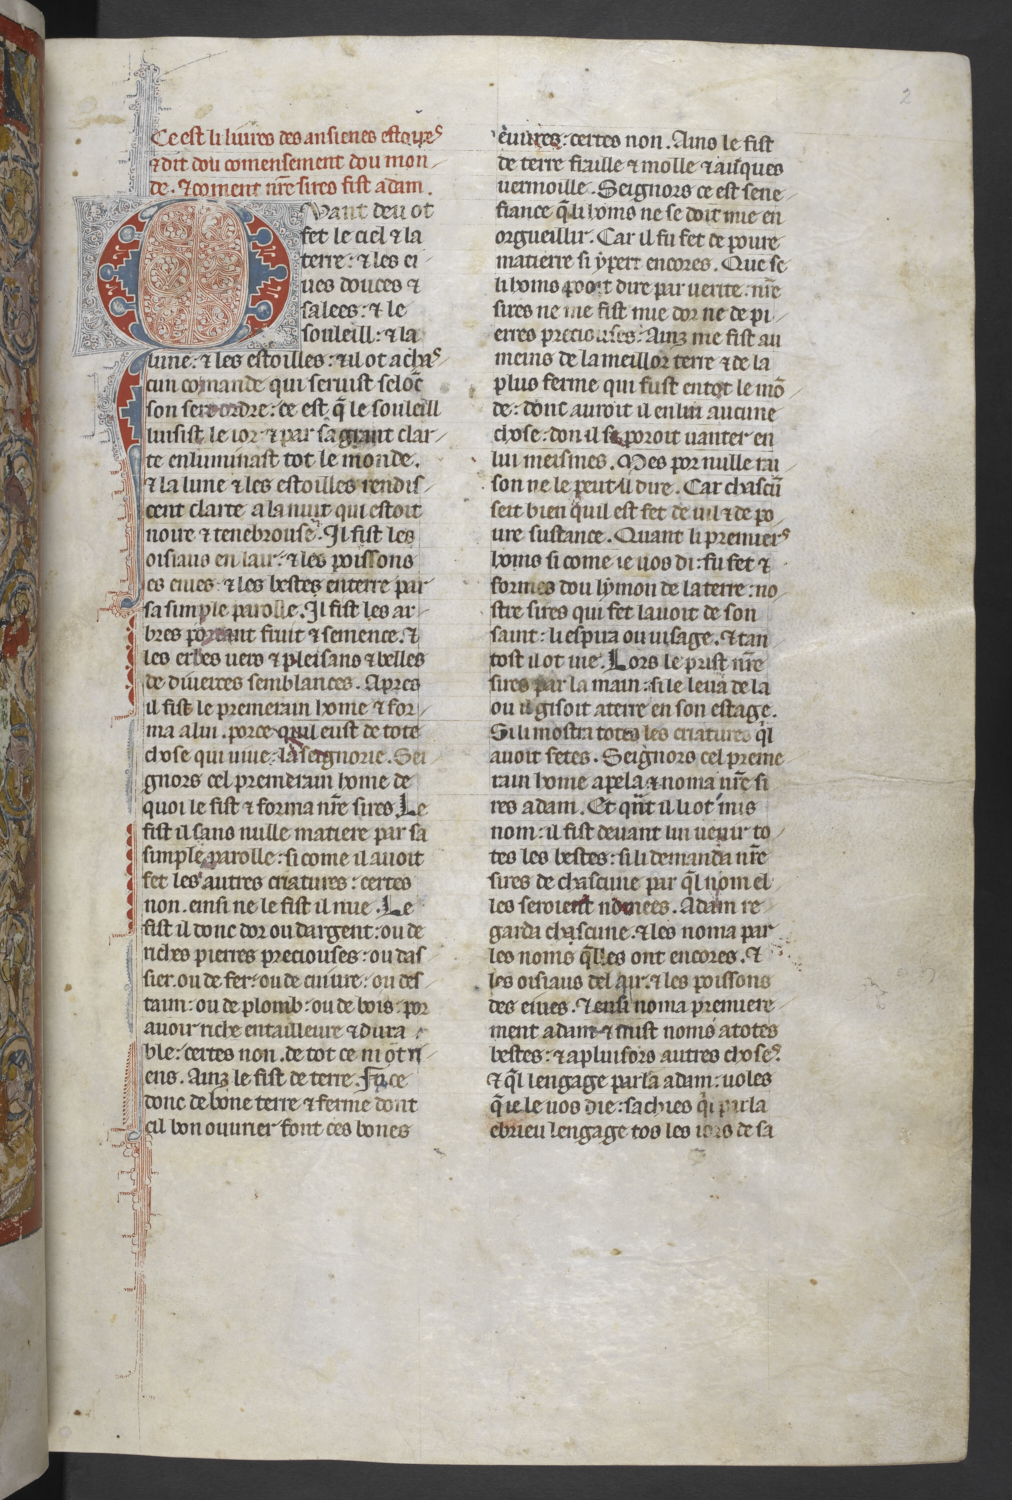 2
Ce est li liures des ansienes estoires
⁊ dit dou comensement dou mon
de. ⁊ coment nr̃e sires fist adam.
Quant deu ot
fet le ciel ⁊ la
terre: ⁊ les ei
ues douces ⁊
salees: ⁊ le
souleill: ⁊ la
lune: ⁊ les estoilles: ⁊ il ot a chas
cun comande qui seruist selõc
son ordre: ce est q̃ le souleill
luisist le ior ⁊ par sa grant clar
te enluminast tot le monde.
⁊ la lune ⁊ les estoilles rendis
cent clarte a la nuit qui estoit
noire ⁊ tenebrouse. Il fist les
oisiaus en lair: ⁊ les poissons
es eiues ⁊ les bestes en terre par
sa simple parolle. Il fist les ar
bres portant fruit ⁊ semence. ⁊
les erbes uers ⁊ pleisans ⁊ belles
de diuerces semblances. Apres
il fist le premerain home ⁊ for
ma a lui. por ce quil eust de tote
chose qui uiue: la seignorie. Sei
gnors cel premerain home de
quoi le fist ⁊ forma nr̃e sires. Le
fist il sans nulle matiere par sa
simple parolle: si come il auoit
fet les autres criatures: certes
non. einsi ne le fist il mie. Le
fist il donc dor ou dargent: ou de
riches pierres preciouses: ou das
sier. ou de fer: ou de cuiure: ou des
taim: ou de plomb: ou de bois: por
auoir riche entailleure ⁊ dura
ble: certes non. de tot ce ni ot ri
ens. Ainz le fist de terre. Fu ce
donc de bone terre ⁊ ferme dont
cil bon ouurier font ces bones
euures: certes non. Ains le fist
de terre fraille ⁊ molle ⁊ auques
uermoille. Seignors ce est sene
fiance q̃ li homs ne se doit mie en
orgueillir. Car il fu fet de poure
matierre si ẏ pert encores. Que se
li homs poo͛t dire par uerite: nr̃e
sires ne me fist mie dor ne de pi
erres preciouses: Ainz me fist au
meins de la meillor terre ⁊ de la
plus ferme qui fust en tot le mõ
de: dont auroit il en lui aucune
chose: don il se poroit uanter en
lui meismes. Mes por nulle rai
son ne le peut il dire. Car chascũ
seit bien quil est fet de uil ⁊ de po
ure sustance. Quant li premiers
homs si come ie uos di: fu fet ⁊
formes dou lẏmon de la terre: no
stre sires qui fet lauoit de son
saint: li espira ou uisage. ⁊ tan
tost il ot uie. Lors le prist nr̃e
sires par la main: si le leua de la
ou il gisoit a terre en son estage.
Si li mostra totes les criatures q̃l
auoit fetes. Seignors cel preme
rain home apela ⁊ noma nr̃e si
res adam. Et q̃nt il li ot mis
nom: il fist deuant lui uenir to
tes les bestes: si li demanda nr̃e
sires de chascune par q̃l nom el
les seroient nomees. Adam re
garda chascune. ⁊ les noma par
les noms q̃lles ont encores. ⁊
les oisiaus del air. ⁊ les poissons
des eiues. ⁊ ensi noma premiere
ment adam ⁊ mist noms a totes
bestes: ⁊ a pluisors autres choses.
⁊ q̃l lengage parla adam: uoles
q̃ ie le uos die: sachies q̾l parla
ebrieu lengage tos les iors de sa